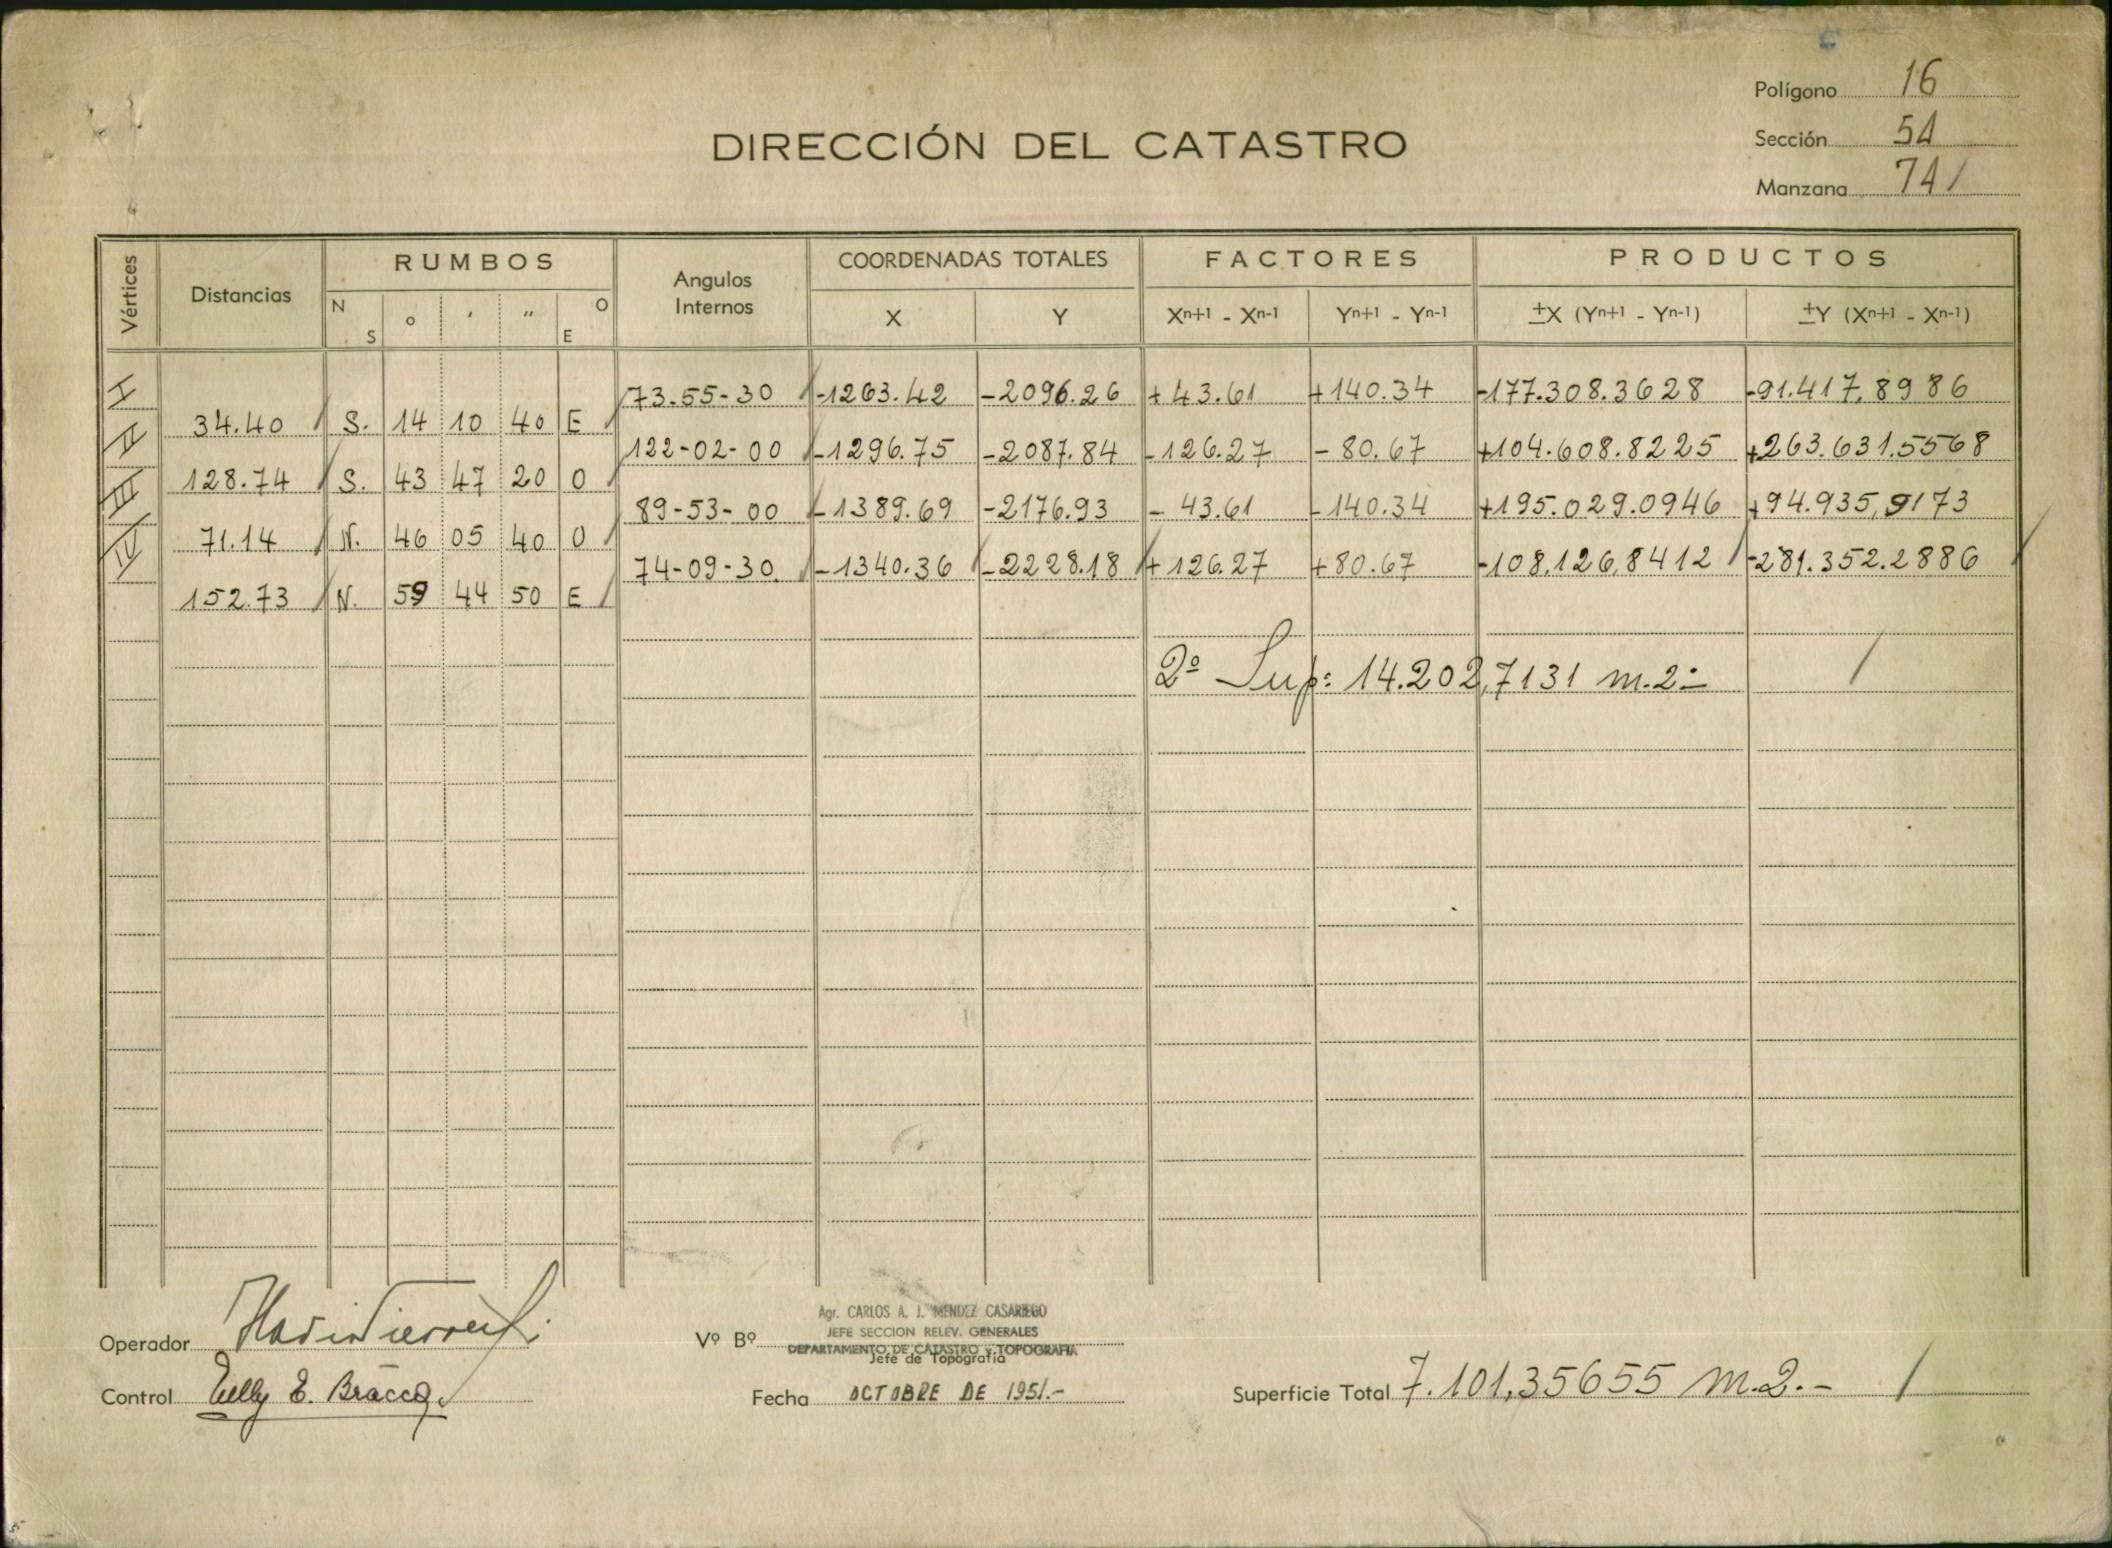 Polígono 16
DIRECCIÓN DEL CATASTRO
Sección 54
Manzana 74
Vértices Distancias RUMBOS Angulos Internos COORDENADAS TOTALES FACTORES PRODUCTOS
N S o ' " O E X Y Xn+1 - Xn-1 Yn+1 - Yn-1 ±X (Yn+1 - Yn-1) ±Y (Xn+1 - Xn-1)
I 73-55-30 -1263.42 -2096.26 +43.61 +140.34 -177.308.3628 -91.417,8986
34.40 S. 14 10 40 E
II 122-02-00 -1296.75 -2087.84 -126.27 -80.67 +104.608.8225 +263.631.5568
128.74 S. 43 47 20 O
III 89-53-00 -1389.69 -2176.93 -43.61 -140.34 +195.029.0946 +94.935,9173
71.14 N. 46 05 40 O
IV 74-09-30 -1340.36 -2228.18 +126.27 +80.67 -108.126,8412 -281.352.2886
152.73 N. 59 44 50 E
2º Sup: 14.202,7131 m.2=
Agr. CARLOS A. J. MENDEZ CASARIEGO
JEFE SECCION RELEV. GENERALES
Operador Vº Bº DEPARTAMENTO DE CATASTRO Y TOPOGRAFIA
Jefe de Topografía
Control E. Bracco Fecha OCTOBRE DE 1951.- Superficie Total 7.101,35655 m.2.-